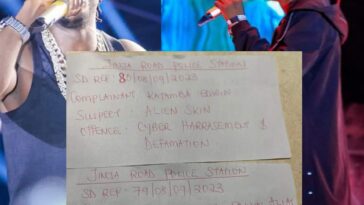 JINJA ROAD POLICE STATION
SD REF: 80/08/09/2023
COMPLAINANT: KATAMBA EDRIN
SUSPECT: ALIEN SKIN
OFFENCE: CYBER HARRASEMENT &
DEFAMATION
JINJA ROAD POLICE STATION
SD REF: 79/08/09/2023